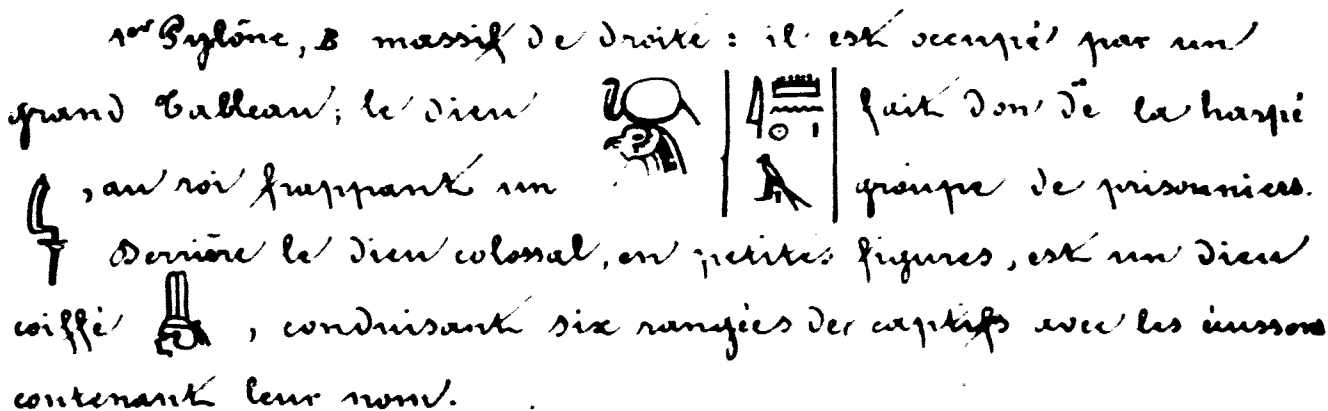 1er Pylône, B massif de droite : il est occupé par un
grand tableau; le dieu 𓇋𓏠𓈖𓇳𓏤𓅆 fait don de la harpé
, au roi frappant un groupe de prisonniers.
Derrière le dieu colossal, en petites figures, est un dieu
coiffé , conduisant six rangées de captifs avec les écussons
contenant leur nom.